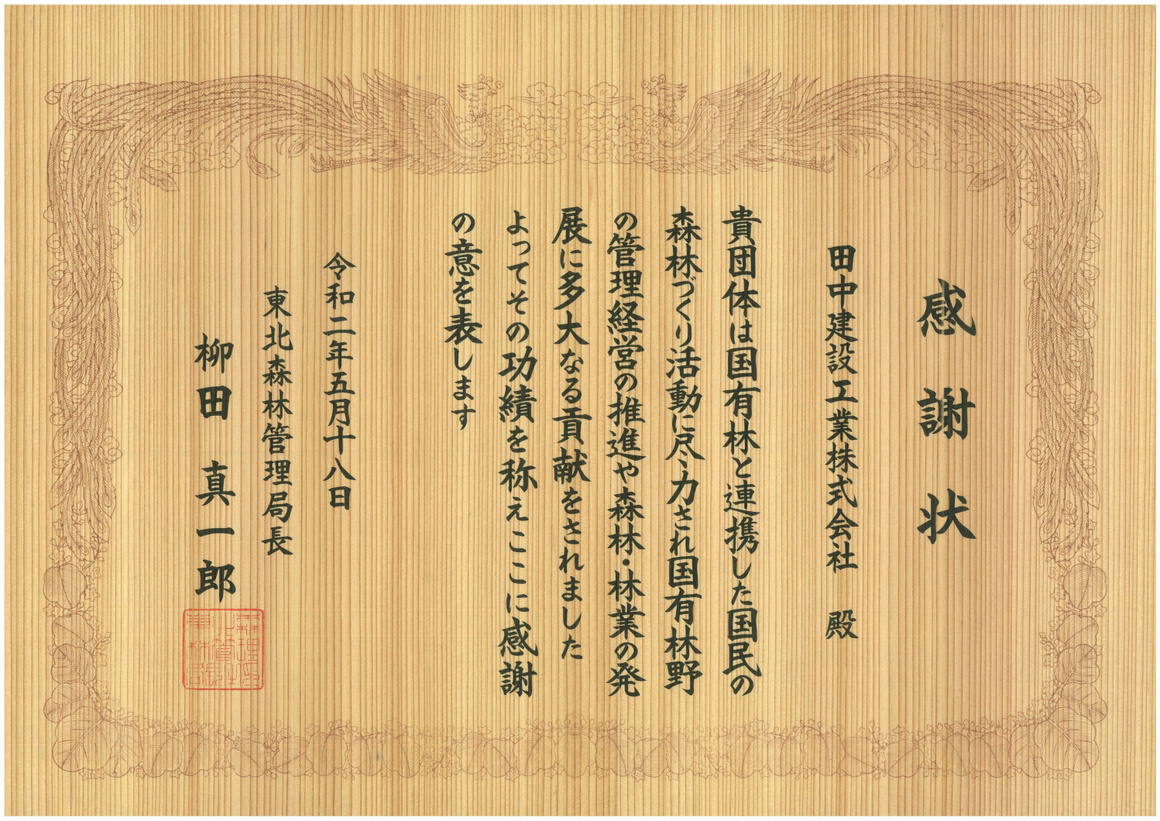 感謝状
田中建設工業株式会社 殿
貴団体は国有林と連携した国民の
森林づくり活動に尽力され国有林野
の管理経営の推進や森林・林業の発
展に多大なる貢献をされました
よってその功績を称えここに感謝
の意を表します
令和二年五月十八日
東北森林管理局長
柳田 真一郎